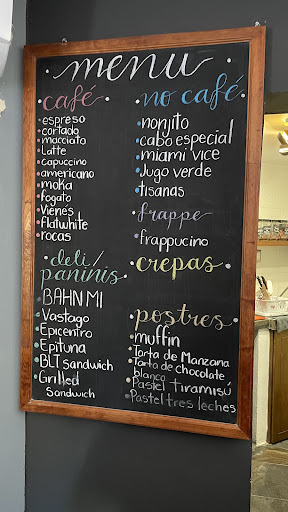 menu
café
espreso
cortado
macciato
Latte
capuccino
americano
moka
fogato
Vienés
flatwhite
rocas
deli/
paninis
BAHN MI
Vastago
Epicentro
Epituna
BLT sandwich
Grilled
Sandwich
no café
nonjito
cabo especial
miami vice
Jugo verde
tisanas
frappe
frappucino
crepas
postres
muffin
Torta de Manzana
Torta de chocolate
blanco
Pastel tiramisú
Pastel tres leches